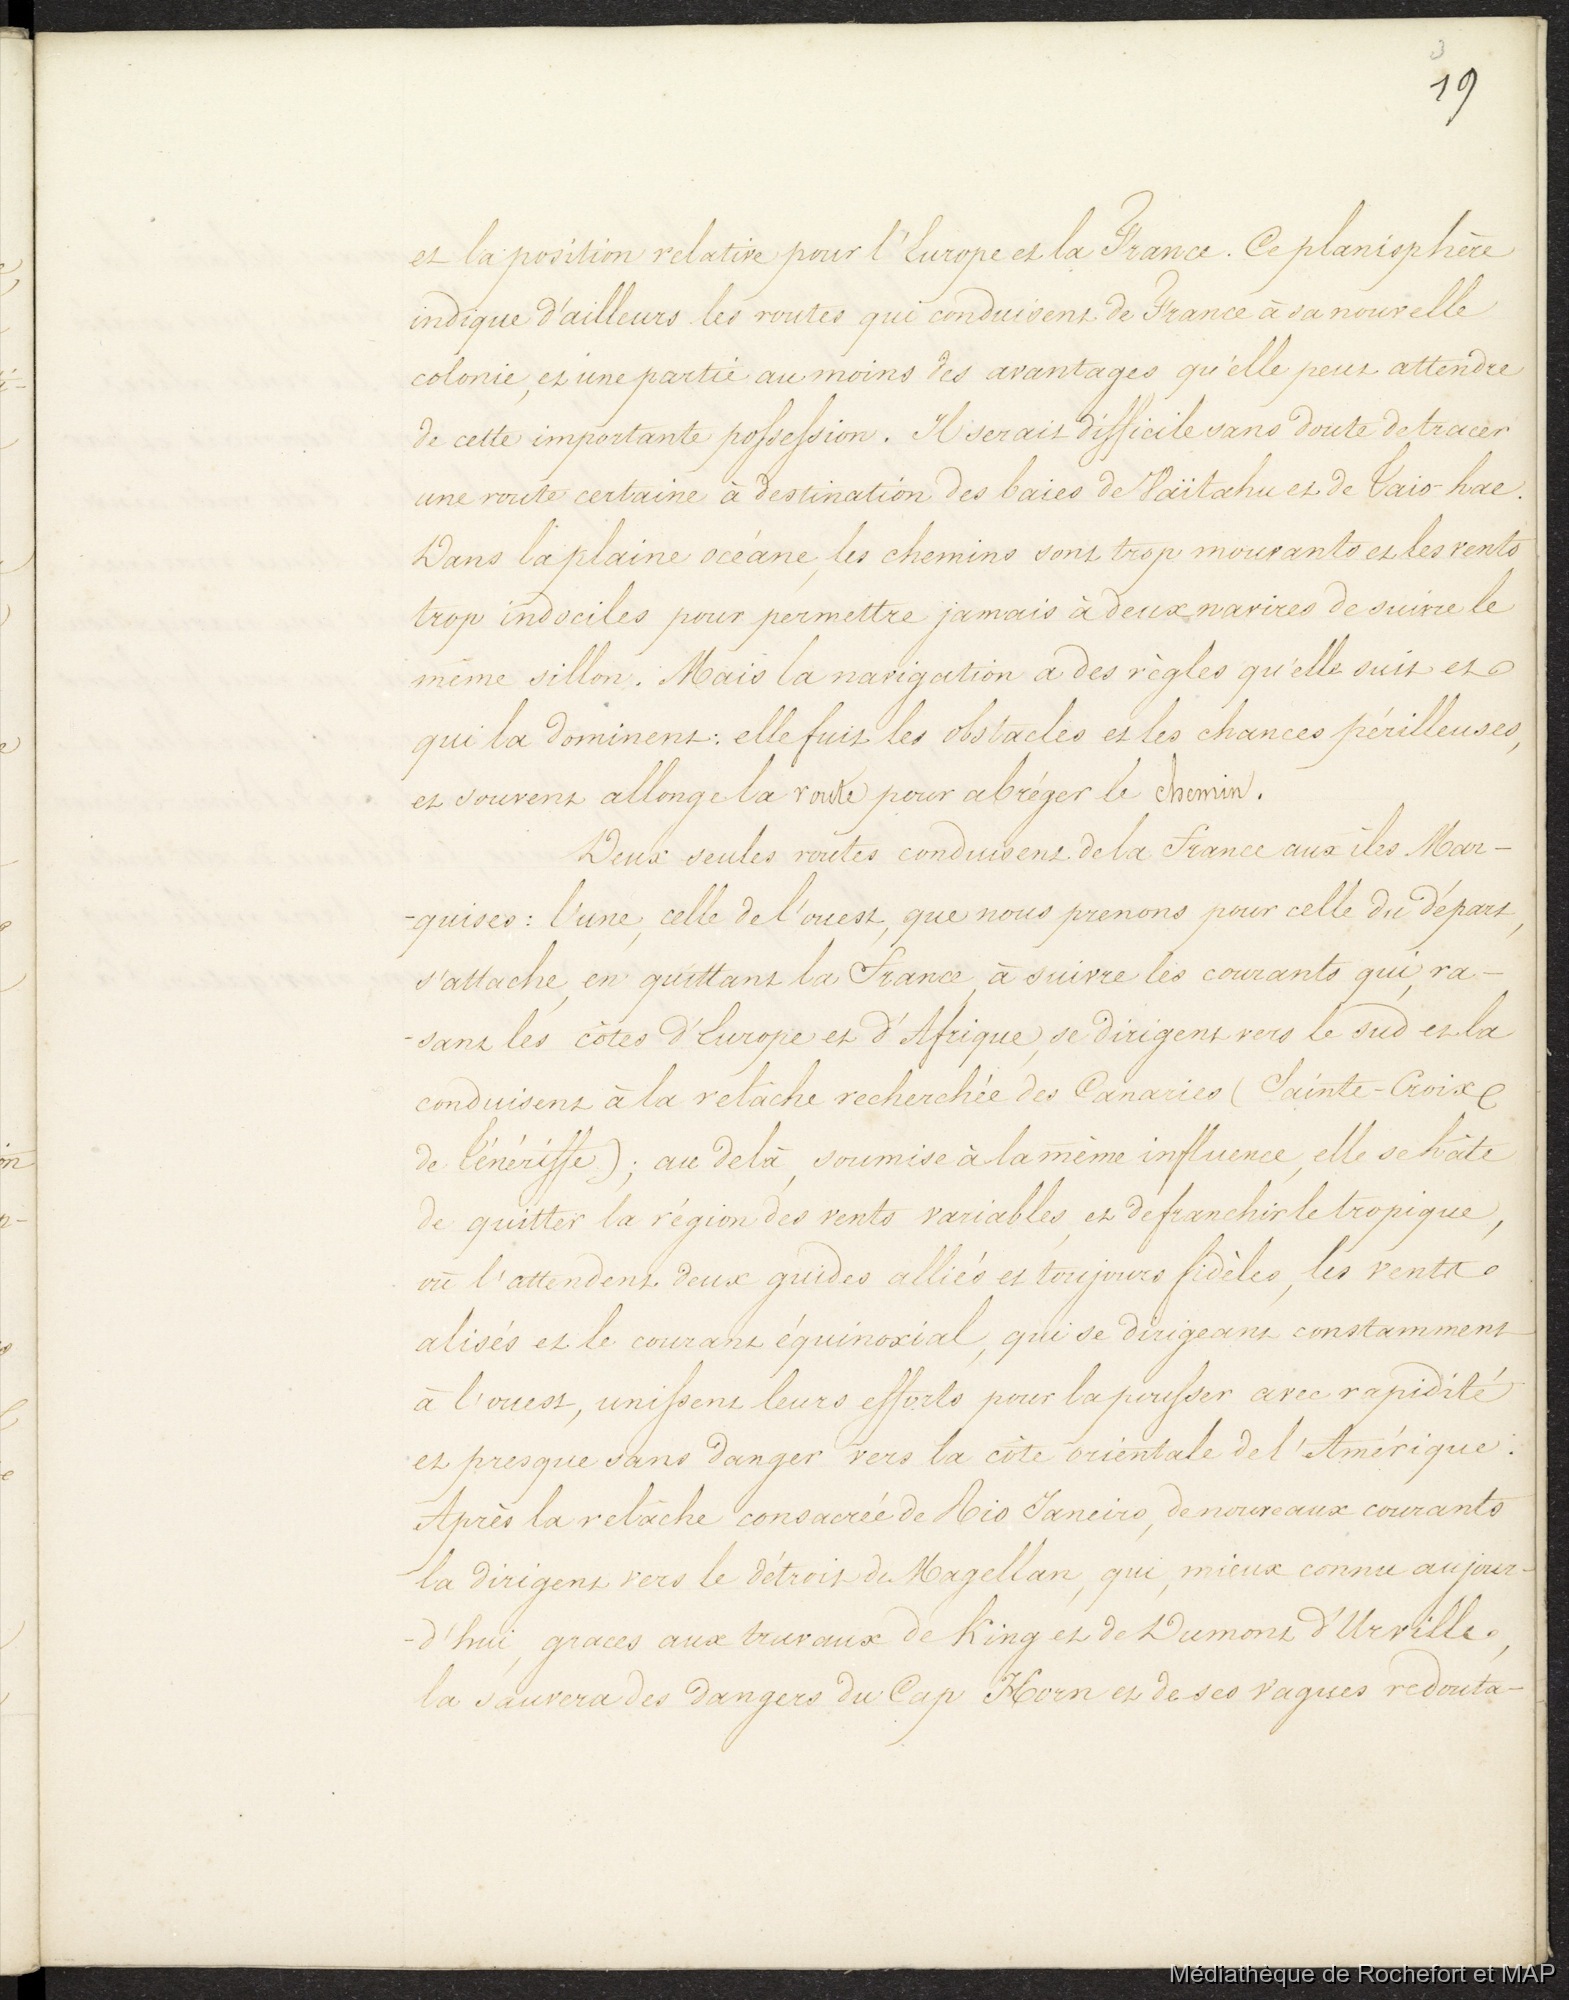 3
19
et la position relative pour l'Europe et la France. Ce planisphère
indique d'ailleurs les routes qui conduisent de France à sa nouvelle
colonie, et une partie au moins des avantages qu'elle peut attendre
de cette importante possession. Il serait difficile sans doute de tracer
une route certaine à destination des baies de Vaïtahu et de Taio-hae.
Dans la plaine océane, les chemins sont trop mouvants et les vents
trop indociles pour permettre jamais à deux navires de suivre le
même sillon. Mais la navigation a des règles qu'elle suit et
qui la dominent: elle fuit les obstacles et les chances périlleuses,
et souvent allonge la route pour abréger le chemin.
Deux seules routes conduisent de la France aux îles Mar-
-quises: l'une, celle de l'ouest, que nous prenons pour celle du départ,
s'attache, en quittant la France, à suivre les courants qui, ra-
-sant les côtes d'Europe et d'Afrique, se dirigent vers le sud et la
conduisent à la relâche recherchée des Canaries (Sainte-Croix
de Ténériffe); au delà, soumise à la même influence, elle se hâte
de quitter la région des vents variables, et de franchir le tropique,
où l'attendent deux guides alliés et toujours fidèles, les vents
alisés et le courant équinoxial, qui se dirigeant constamment
à l'ouest, unissent leurs efforts pour la pousser avec rapidité
et presque sans danger vers la côte orientale de l'Amérique.
Après la relâche consacrée de Rio Janeiro, de nouveaux courants
la dirigent vers le détroit de Magellan, qui, mieux connu aujour-
-d'hui, graces aux travaux de King et de Dumont d'Urville,
la sauvera des dangers du Cap Horn et de ses vagues redouta-
Médiathèque de Rochefort et MAP